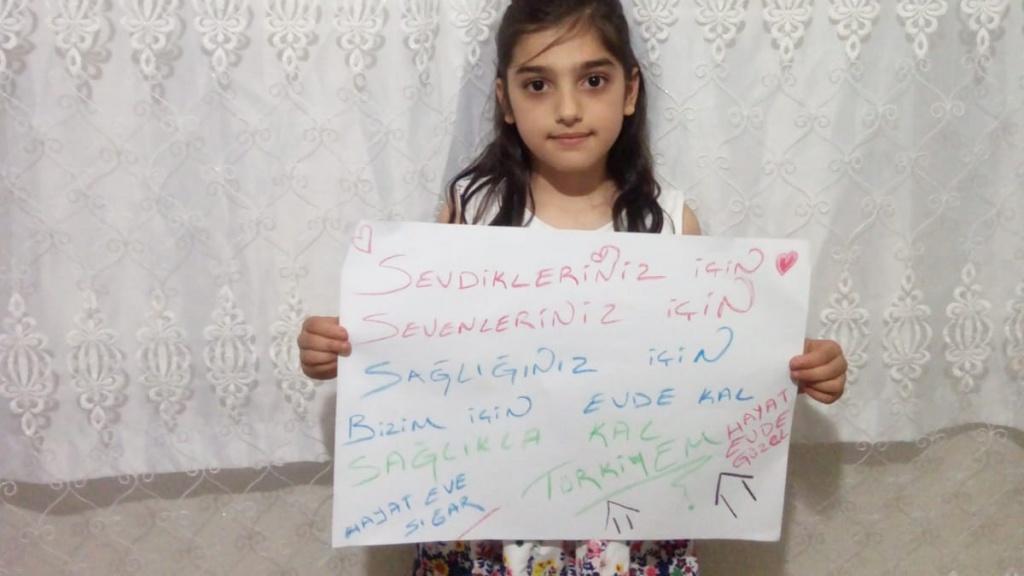 SEVDİKLERİNİZ İÇİN
SEVENLERİNİZ İÇİN
SAĞLIĞINIZ İÇİN
BİZİM İÇİN EVDE KAL
SAĞLIKLA KAL
TÜRKİYEM
HAYAT
EVDE
GÜZEL
HAYAT EVE
SIĞAR